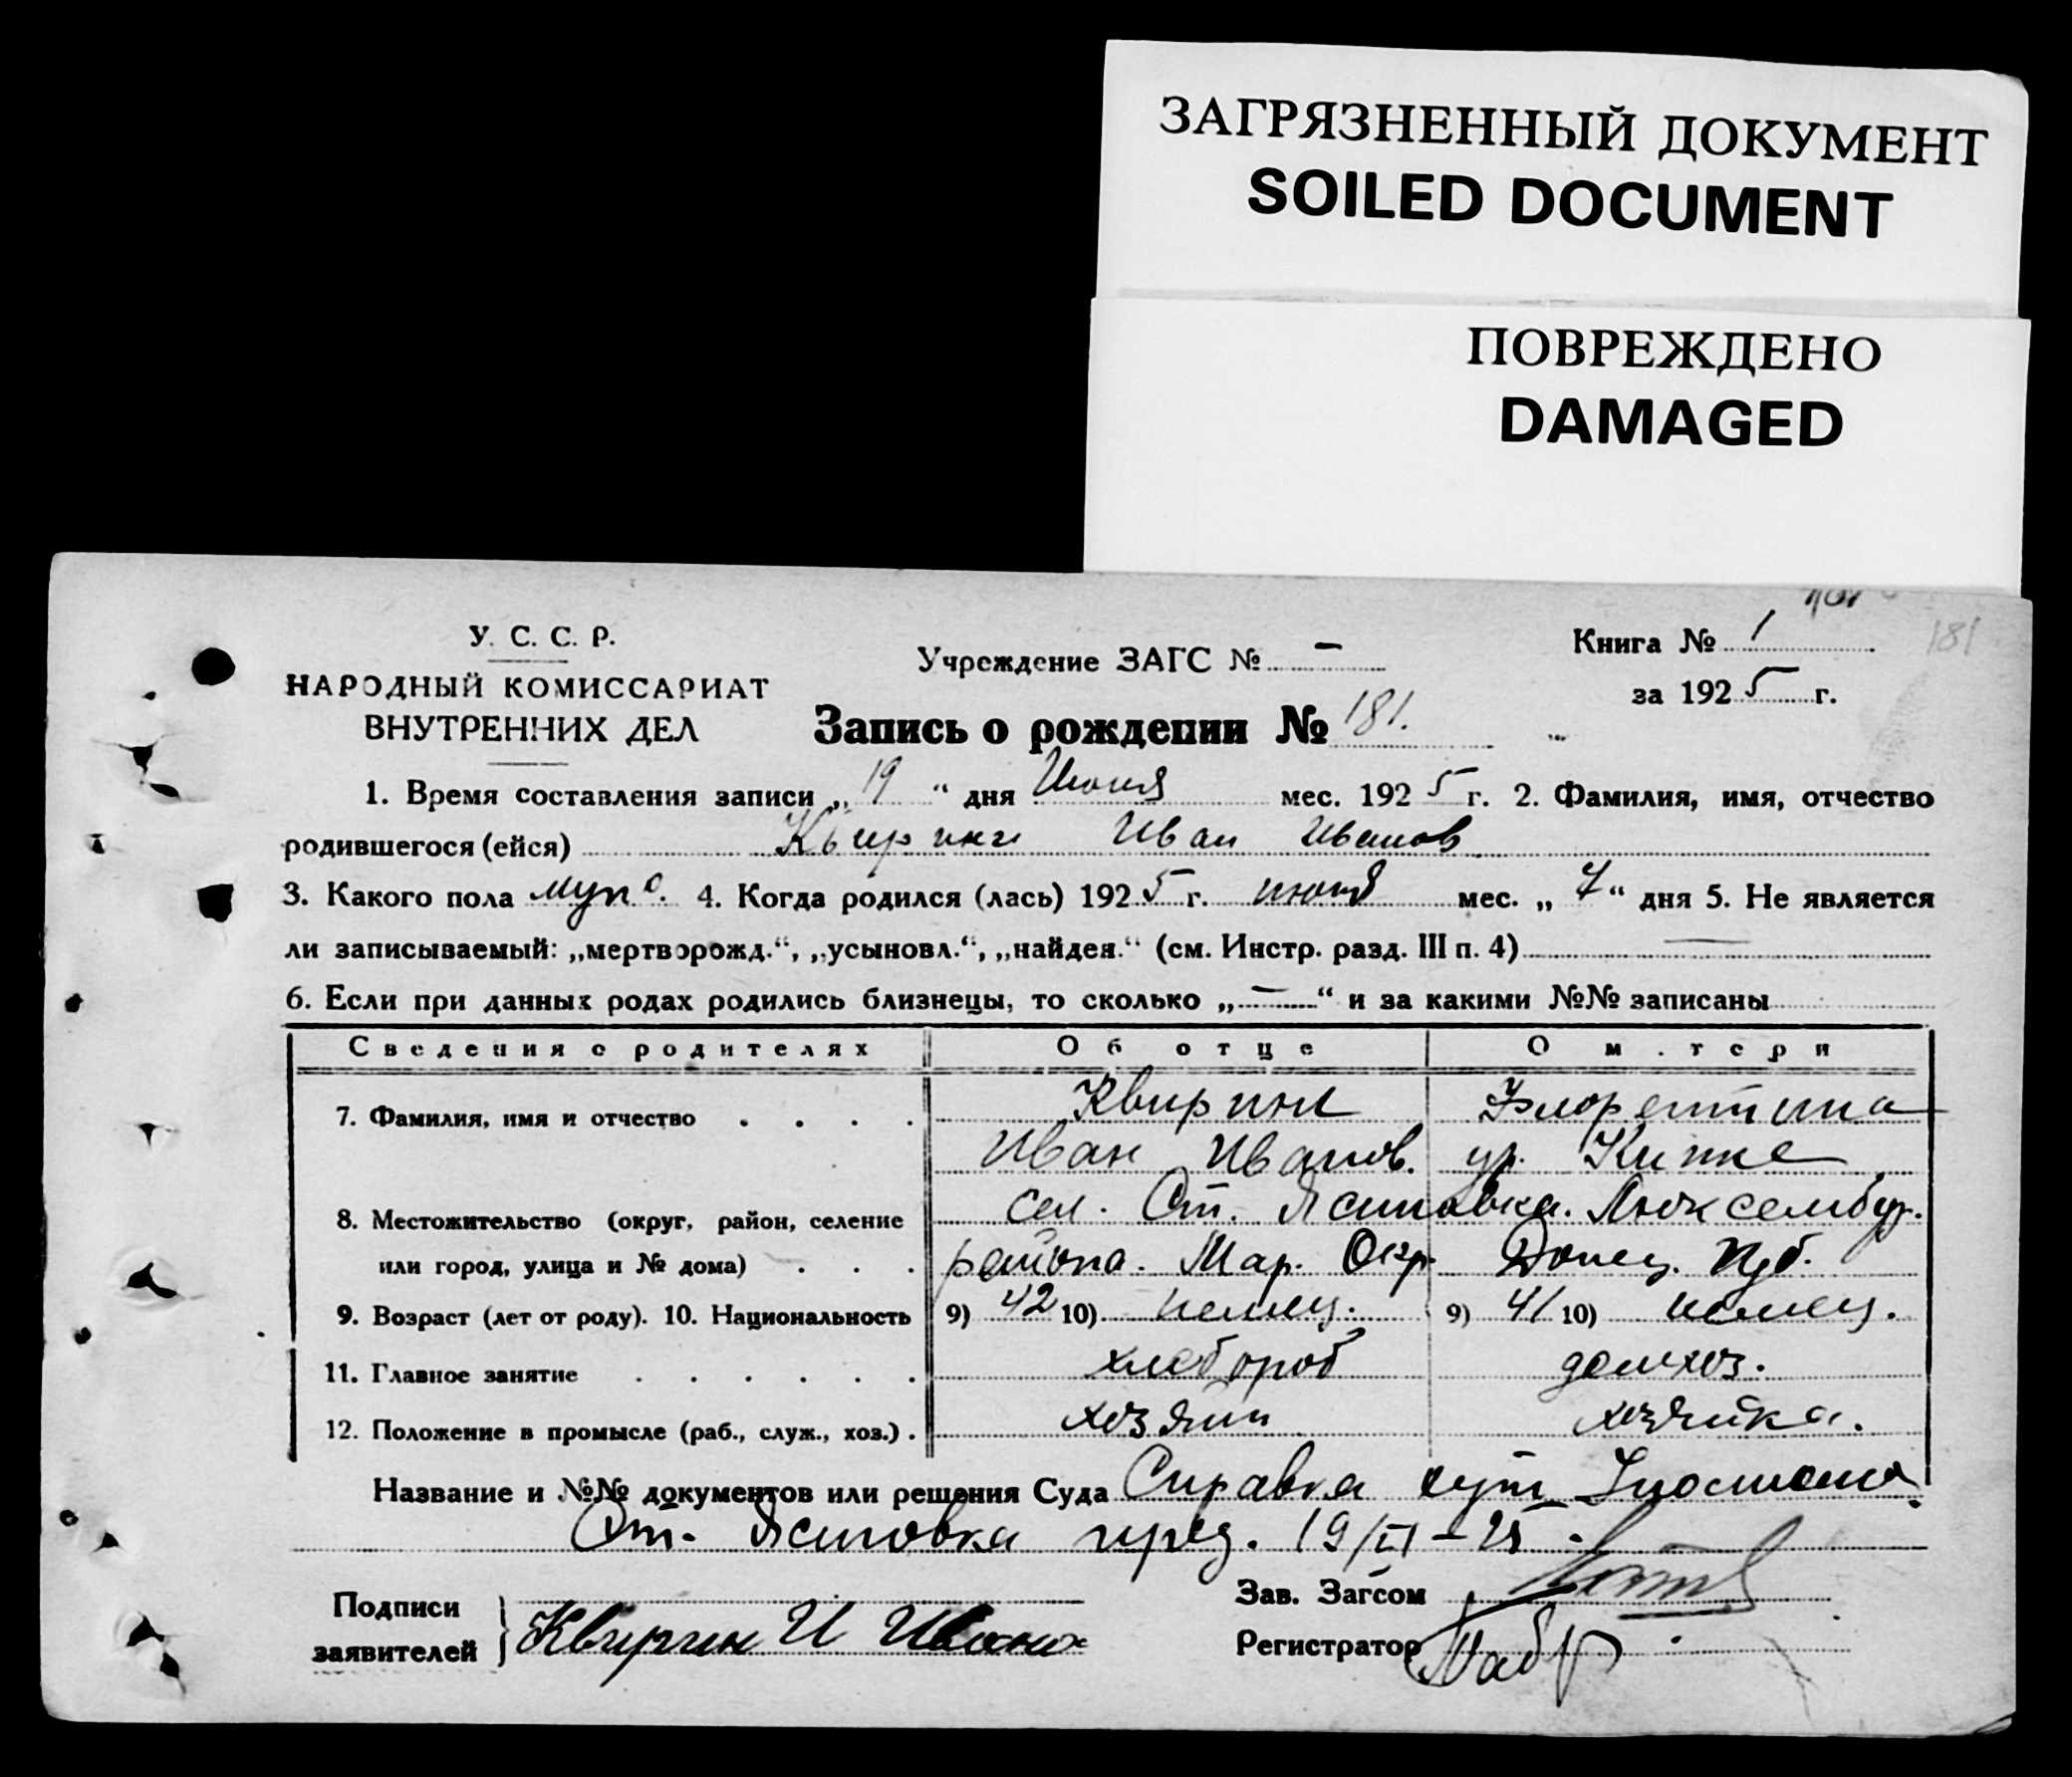 ЗАГРЯЗНЕННЫЙ ДОКУМЕНТ
SOILED DOCUMENT
ПОВРЕЖДЕНО
DAMAGED
У. С. С. Р.
НАРОДНЫЙ КОМИССАРИАТ
ВНУТРЕННИХ ДЕЛ
Учреждение ЗАГС № —
Книга № 1
181
за 1925 г.
Запись о рождении № 181.
1. Время составления записи „19“ дня Июня мес. 1925 г. 2. Фамилия, имя, отчество
родившегося (ейся) Квиринг Иван Иванов
3. Какого пола муж. 4. Когда родился (лась) 1925 г. июня мес. „7“ дня 5. Не является
ли записываемый: „мертворожд.“, „усыновл.“, „найден.“ (см. Инстр. разд. III п. 4) —
6. Если при данных родах родились близнецы, то сколько „—“ и за какими №№ записаны
Сведения о родителях Об отце О матери
7. Фамилия, имя и отчество Квиринг Флорентина
Иван Иванов. ур. Кипке
8. Местожительство (округ, район, селение сел. Ст. Ясиновка. Люксембур.
или город, улица и № дома) района. Мар. Окр. Донец. Губ.
9. Возраст (лет от роду). 10. Национальность 9) 42 10) немец. 9) 41 10) немец.
11. Главное занятие хлебороб домхоз.
12. Положение в промысле (раб., служ., хоз.) хозяин хозяйка.
Название и №№ документов или решения Суда Справка
Ст. Ясиновка пред. 19/VI-25
Подписи
заявителей Квиринг И Иванов
Зав. Загсом
Регистратор